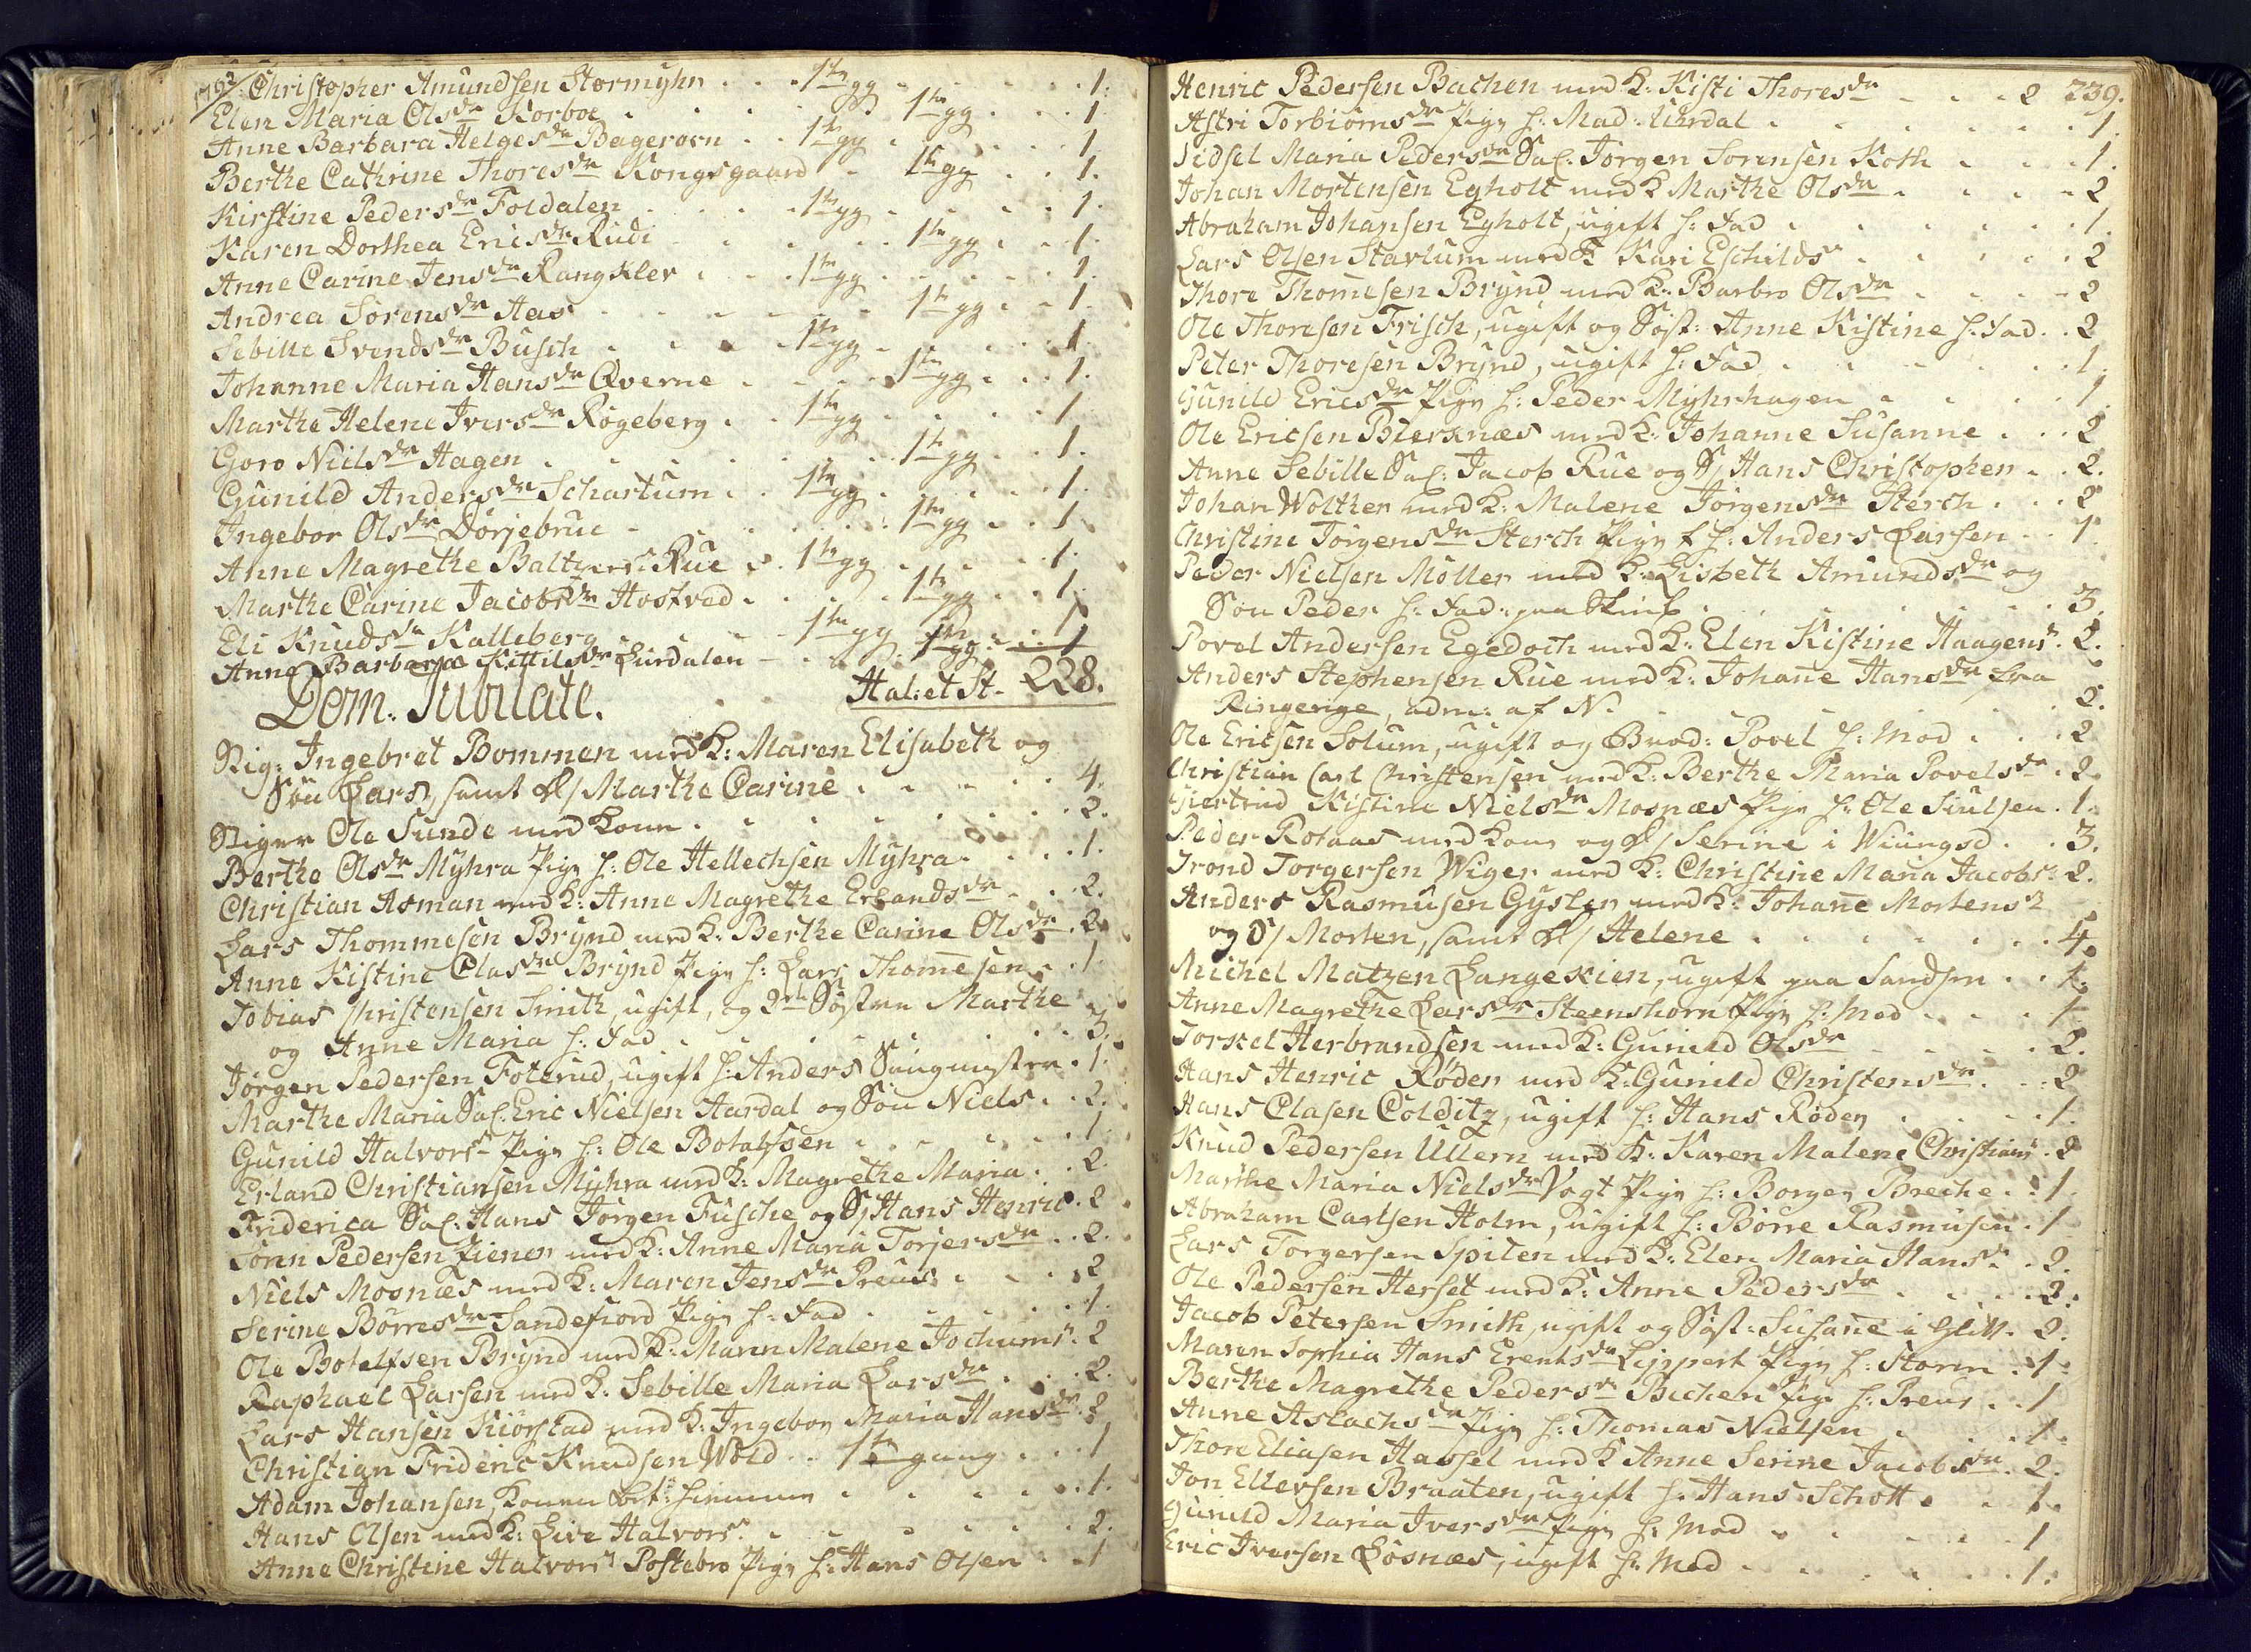 Christopher Amundsen Stormyhr . . . 1ste gg . . . 1.
Elen Maria Olsdr Korboe . . . 1ste gg . . . 1
Anne Barbara Helgesdr Bageroen . . 1ste gg . . . 1.
Berthe Cathrine Thoresdr Kongsgaard . 1ste gg . . 1.
Kirstine Pedersdr Foldalen . . . 1ste gg . . . 1.
Karen Dorthea Ericsdr Rudi . . . 1ste gg . . 1.
Anne Carine Jensdr Rangkler . . . 1ste gg . . . 1.
Andrea Sørensdr Aas . . . 1ste gg . . 1.
Sebille Svendsdr Busch . . . 1ste gg . . . 1.
Johanne Maria Hansdr Qverne . . . 1ste gg . . . 1.
Marthe Helene Iversdr Røgeberg . . 1ste gg . . . 1
Goro Nielsdr Hagen . . . 1ste gg . . . 1.
Gunild Andersdr Schartum . . 1ste gg . . . 1.
Ingebor Olsdr Dørjebrue . . . 1ste gg . . 1.
Anne Magrethe Baltzersdr Rue . 1ste gg . . . 1.
Marthe Carine Jacobsdr Hostved . . . 1ste gg . . 1.
Eli Knudsdr Kalleberg . . . 1ste gg . . . 1
Anne Barbara Kittilsdr Lurdalen . . . 1ste gg . . . 1
Dom. Jubilate. Hal: et St. 228.
Stig: Ingebret Bommen med K: Maren Elisabeth og
Søn Lars, samt D/ Marthe Carine . . . 4.
Stiger Ole Sunde med Kone . . . 2.
Berthe Olsdr Myhra Pige h: Ole Hellechsen Myhra . . . 1.
Christian Asman med K: Anne Magrethe Erlandsdr . . 2.
Lars Thommesen Brynd med K: Berthe Carine Olsdr . 2.
Anne Kistine Olasdr Brynd Pige h: Lars Thom̄esen . . 1
Tobias Christensen Smith, ugift, og 2de Søstre Marthe
og Anne Maria h: Fad . . . 3.
Jørgen Pedersen Foterud, ugift h: Anders Saugmester . 1.
Marthe Maria Sal. Eric Nielsen Aardal og Søn Niels . . 2.
Gunild Halvorsdr Pige h: Ole Botolfsen . . . 1.
Erland Christiansen Myhra med K: Magrethe Maria . . 2.
Friderica Sal. Hans Jørgen Fusche og S/ Hans Henric . 2
Sønn Pedersen Ziener med K: Anne Maria Torjersdr . . 2.
Niels Mosnæs med K: Maren Jensdr Preus . . . 2
Serine Børresdr Sandefiord Pige h: Fad . . . 1.
Ole Botolfsen Brynd med K: Maren Malene Jochumsdr . 2
Raphael Larsen med K: Sebille Maria Larsdr . . . 2.
Lars Hansen Kiørstad med K: Ingebor Maria Hansdr . 2
Christian Frideric Knudsen Wold . . 1ste gang . . . 1
Adam Johansen, Konen bet: hiemme . . . 1.
Hans Olsen med K: Live Halvorsdr . . . 2.
Anne Christine Halvorsdr Postebro Pige h: Hans Olsen . . 1
Henric Pedersen Bachen med K: Kisti Thoresdr . . . 2 239.
Astri Torbiørnsdr Pige h: Mad: Uurdal . . . 1.
Sidsel Maria Pedersdr Sal. Jørgen Sorensen Koth . . . 1.
Johan Mortensen Egholt med K Marthe Olsdr . . . 2
Abraham Johansen Egholt, ugift h: Fad . . . 1.
Lars Olsen Startum med K Kari Eschilds . . . 2
Thore Thom̄esen Brynd med K: Barbro Olsdr . . . 2
Ole Thoresen Frisch, ugift og Søst: Anne Kistine h: Fad . . 2
Peter Thoresen Brynd, ugift h: Fad . . . 1.
Gunild Ericsdr Pige h: Peder Myhrhagen . . . 1
Ole Ericsen Bierknæs med K: Johanne Susanne . . . 2
Anne Sebille Sal: Jacob Rue og S/ Hans Christopher . . 2.
Johan Wolther med K: Malene Jørgensdr Sterch . . . 2
Christine Jørgensdr Sterch Pige h: Anders Larsen . . 1
Peder Nielsen Møller med K: Lisbeth Amundsdr og
Søn Peder h: Fad: paa . . . 3.
Povel Andersen Egedoch med K: Elen Kistine Haagensdr . 2.
Anders Stephensen Rue med K: Johan̄e Hansdr fra
Ringerige, adm: af N: . . . 2.
Ole Ericsen Solum, ugift og Brod: Povel h: Mod . . . 2
Christian Carl Christensen med K: Berthe Maria Povelsdr . 2.
Giertrud Kistine Nielsdr Mosnæs Pige h: Ole Siulsen . 1.
Peder Rotaas med Kone og D/ Serine i Wiingsd . . 3.
Trond Torgersen Wiger med K: Christine Maria Jacobsdr . 2.
Anders Rasmusen Gysler med K: Johan̄e Mortensdr
og S/ Morten, samt D/ Helene . . . 4.
Michel Matzen Langekien, ugift paa Sandsen . . 1.
Anne Magrethe Larsdr Steenshorn Pige h: Mod . . . 1
Torkel Herbrandsen med K: Gunild Olsdr . . . 2.
Hans Henric Røder med K: Gunild Christensdr . . . 2
Hans Clasen Colditz, ugift h: Hans Røder . . . 1.
Knud Pedersen Ullern med K: Karen Malene Christiansdr . 2
Marthe Maria Nielsdr Vogt Pige h: Borger Breche . . 1.
Abraham Carlsen Holm, ugift h: Børre Rasmusen . 1
Lars Torgersen Spiten med K: Elen Maria Hansdr . 2.
Ole Pedersen Herset med K: Anne Pedersdr . . . 2.
Jacob Petersen Smith, ugift og Søst: Susan̄e i . 2.
Maren Sophia Hans Erentsdr Lippert Pige h: Storm . 1.
Berthe Magrethe Pedersdr Bechen Pige h: Preus . . 1
Anne Aslachsdr Pige h: Thomas Nielsen . . . 1.
Thore Eliasen Hassel med K Anne Serine Jacobsdr . 2.
Jon Ellevsen Braaten, ugift h: Hans Schott . . 1.
Gunild Maria Iversdr Pige h: Mod . . . 1
Eric Iversen Løsnæs, ugift h: Mod . . . 1.